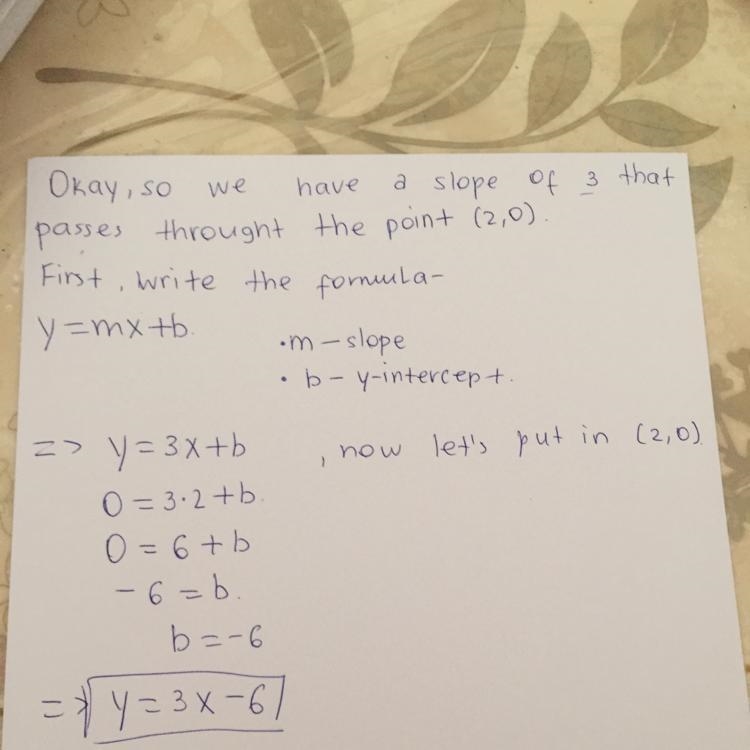 Okay, so we have a slope of 3 that
passes throught the point (2,0).
First, write the formula-
y=mx+b.
•m-slope
• b- y-intercept.
=> y=3x+b , now let's put in (2,0)
0=3·2+b.
0=6+b
-6=b.
b=-6
=> y=3x-6